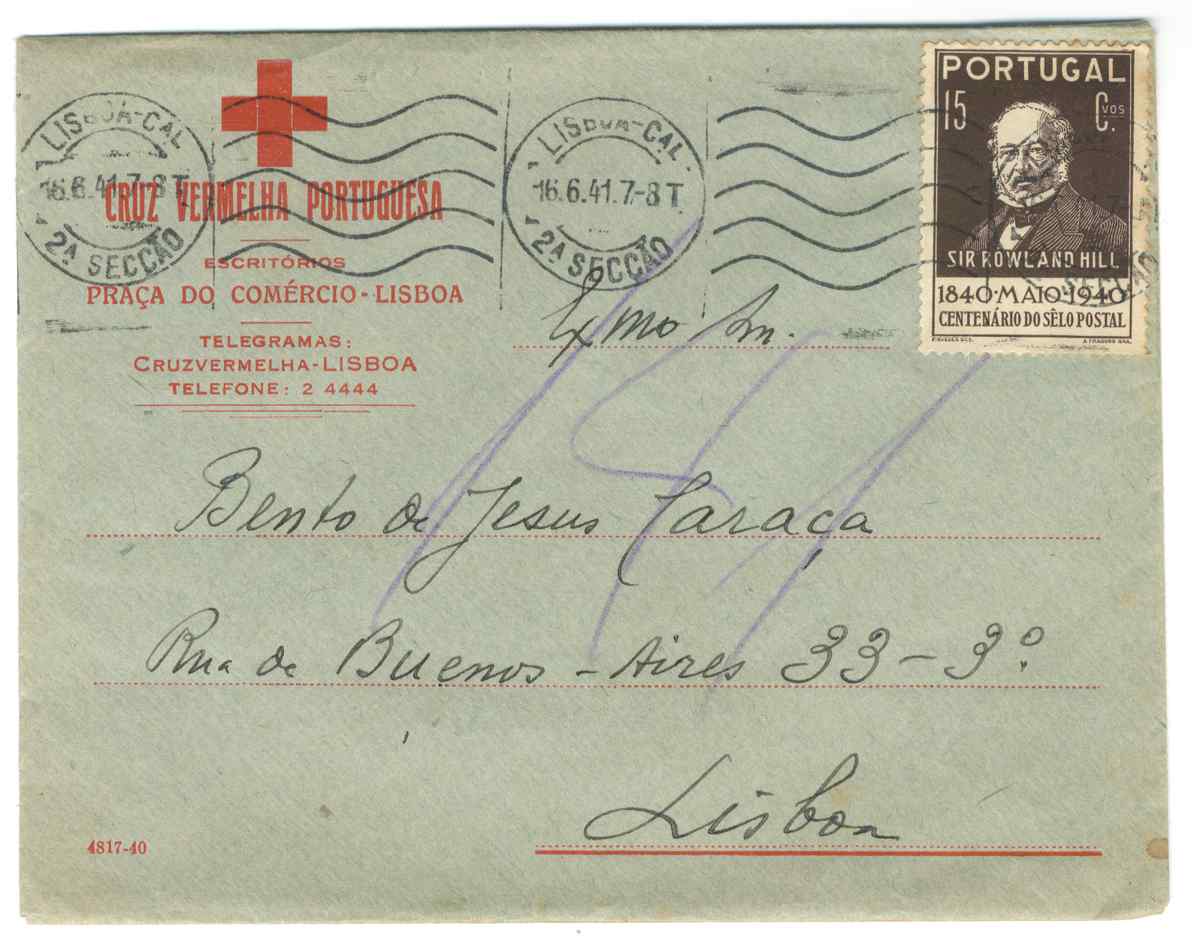 LISBOA-CAL
16.6.41.7-8T
2ª SECCÃO
LISBOA-CAL
16.6.41.7-8T
2ª SECCÃO
PORTUGAL
15 C.vos
SIR ROWLAND HILL
1840·MAIO·1940
CENTENÁRIO DO SÊLO POSTAL
CRUZ VERMELHA PORTUGUESA
ESCRITÓRIOS
PRAÇA DO COMÉRCIO-LISBOA
TELEGRAMAS:
CRUZVERMELHA-LISBOA
TELEFONE: 2 4444
Exmo Sr.
Bento de Jesus Caraça
Rua de Buenos-Aires 33-3º
Lisboa
4817-40